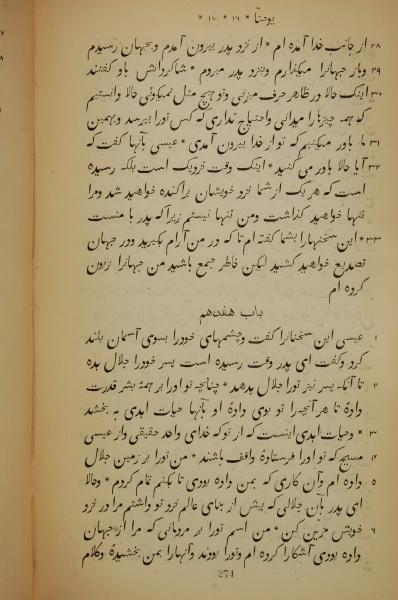 یوحنّا * ۱۶ * ۱۷ *
از جانب خدا آمده ام * از نزد پدر بیرون آمدم وبجهان رسیدم ۲۸
وباز جهانرا میگذارم وبنزد پدر میروم * شاگردانش باو گفتند ۲۹
اینک حالا در ظاهر حرف میزنی وتو هیچ مثل نمیگوئی حالا دانستیم ۳۰
که همه چیزرا میدانی واحتیاج نداری که کس تورا بپرسد وبهمین
ما باور میکنیم که تو از خدا بیرون آمدی * عیسی بآنها گفت که ۳۱
آیا حالا باور می کنید * اینک وقت نزدیک است بلکه رسیده ۳۲
است که هر یک از شما نزد خویشان پراکنده خواهید شد ومرا
تنها خواهید گذاشت ومن تنها نیستم زیرا که پدر با منست
* این سخنهارا بشما گفته ام تا که در من آرام بگیرید ودر جهان ۳۳
تصدیع خواهید کشید لیکن خاطر جمع باشید من جهانرا زبون
کرده ام
باب هفدهم
عیسی این سخنانرا گفت وچشمهای خودرا بسوی آسمان بلند ۱
کرد وگفت ای پدر وقت رسیده است پسر خودرا جلال بده
تا آنکه پسر نیز تورا جلال بدهد * چنانچه تو اورا بر همهٔ بشر قدرت ۲
دادهٔ تا هر آنچه را تو بوی دادهٔ او بآنها حیات ابدی به بخشد
* وحیات ابدی اینست که از تو که خدای واحد حقیقی واز عیسی ۳
مسیح که تو اورا فرستادهٔ واقف باشند * من تورا بر زمین جلال ۴
داده ام وآن کاری که بمن داده بودی تا بکنم تمام کردم * وحالا ۵
ای پدر بآن جلالی که پیش از بنای عالم نزد تو داشتم مرا در نزد
خویش مزین کن * من اسم تورا بر مردمانی که مرا از جهان ۶
داده بودی آشکارا کرده ام وتورا بودند وآنهارا بمن بخشیدهٔ وکلام
274